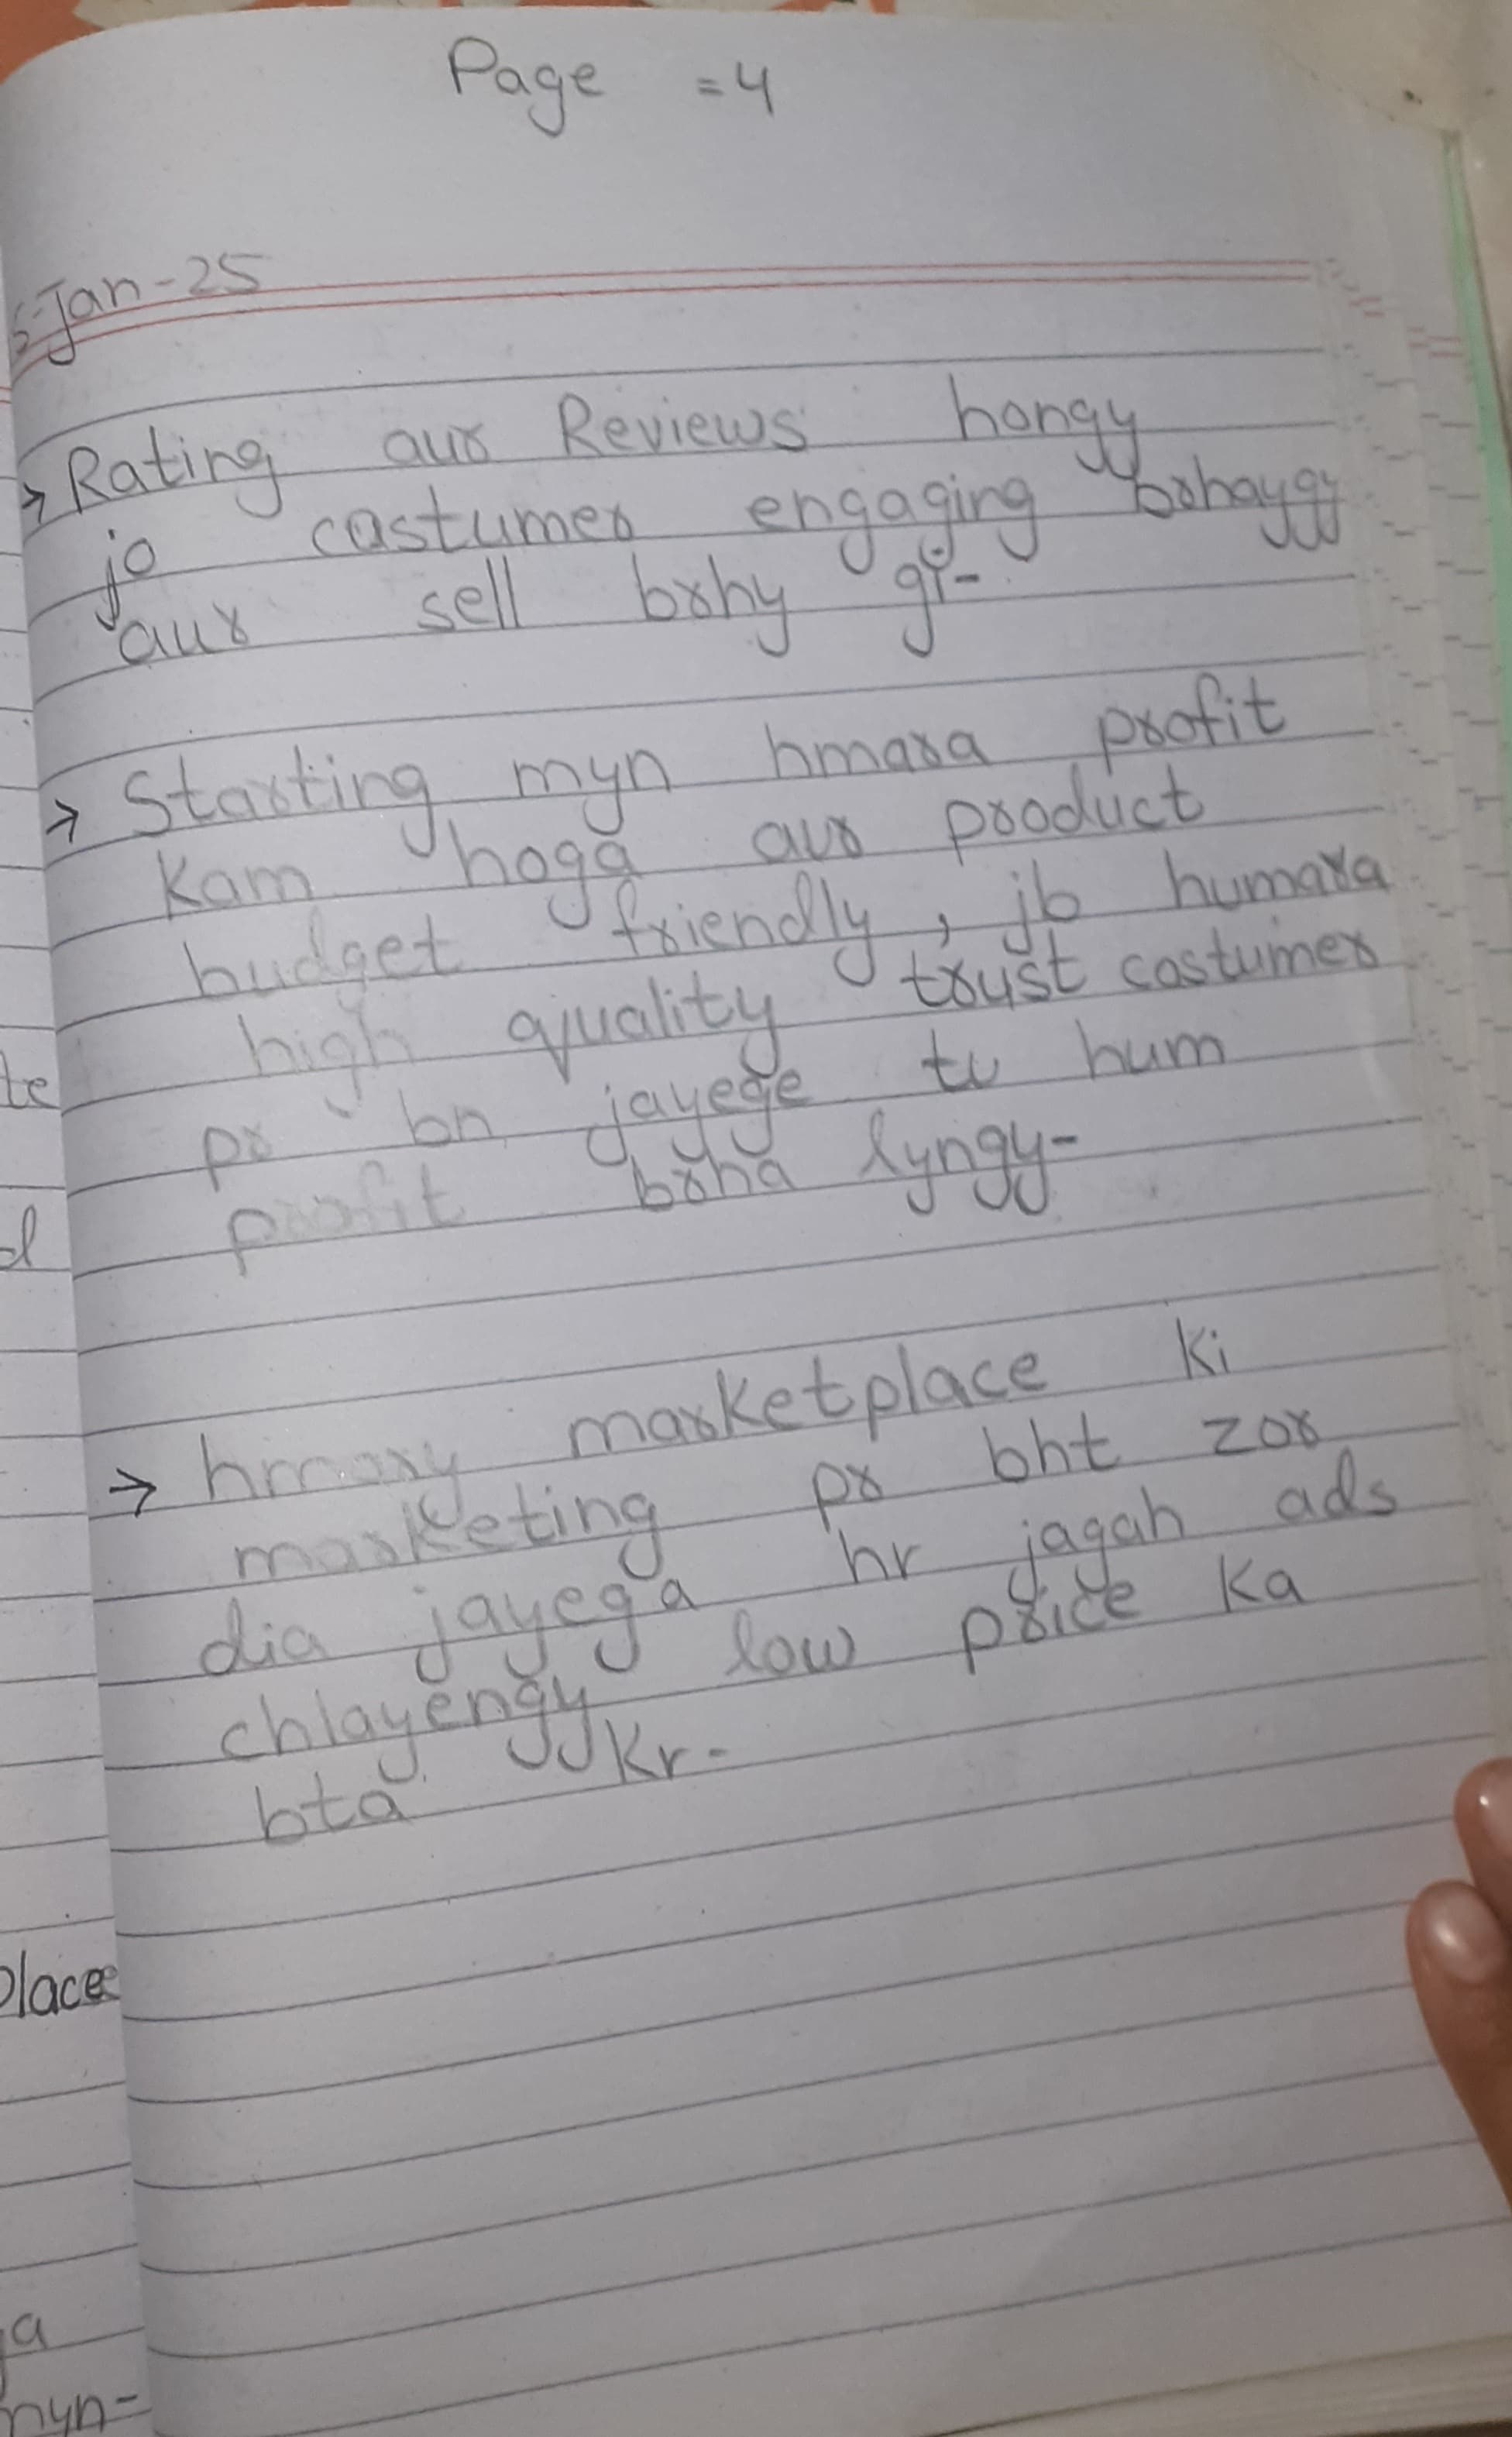 Page = 4
5-Jan-25
→ Rating aur Reviews hongy
jo costumer engaging brhaygy
aur sell brhy gi-
→ Starting myn hmara profit
Kam hoga aur product
budget friendly, jb humara
high quality trust costumer
pr bn jayege tu hum
profit brha lyngy-
→ hmary marketplace Ki
marketing pr bht zor
dia jayega hr jagah ads
chlayengy low price Ka
bta Kr-
te
d
place
a
myn-